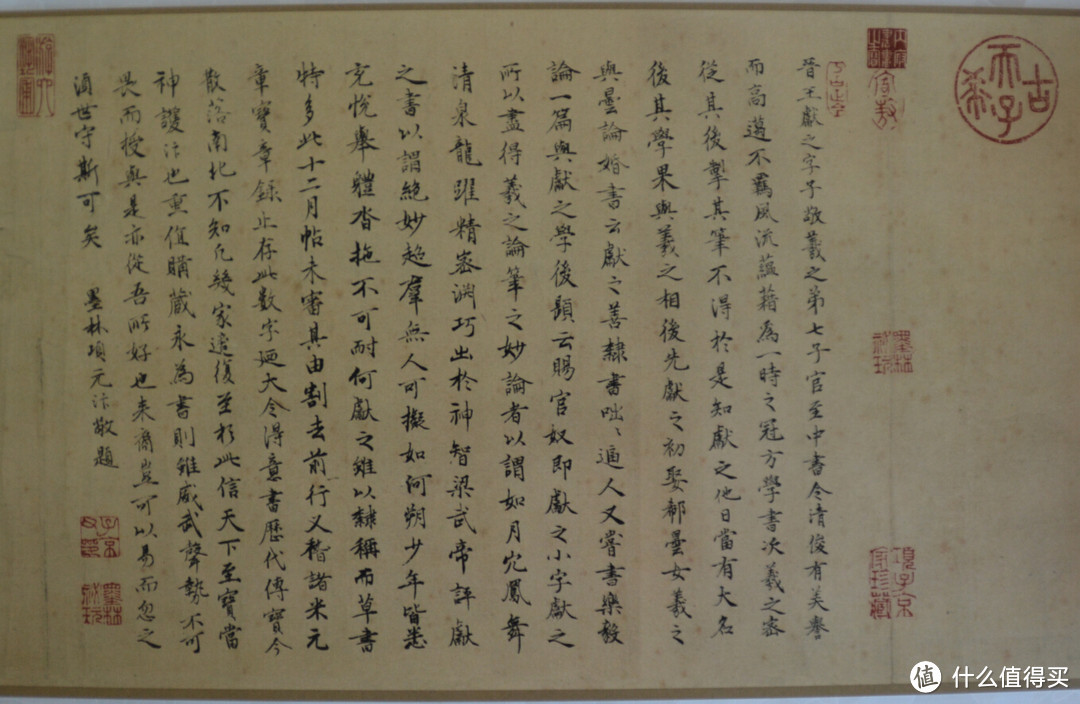 古希天子
晉王獻之字子敬羲之第七子官至中書令清俊有美譽
而高邁不羈風流蘊藉為一時之冠方學書次羲之密
從其後掣其筆不得於是知獻之他日當有大名
後其學果與羲之相後先獻之初娶郗曇女羲之
與曇論婚書云獻之善隸書咄〻逼人又嘗書樂毅
論一篇與獻之學後題云賜官奴即獻之小字獻之
所以盡得羲之論筆之妙論者以謂如月穴鳳舞
清泉龍躍精密淵巧出於神智梁武帝評獻
之書以謂絕妙超羣無人可擬如河朔少年皆悉
充悅舉體沓拖不可耐何獻之雖以隸稱而草書
特多此十二月帖未審其由割去前行又稽諸米元
章寶章錄止存此數字廼大令得意書歷代傳寶今
散落南北不知凡幾家遂復至於此信天下至寶當
神護汴也重值購藏永為書則雖威武聲勢不可
畏而授與是亦從吾所好也來裔豈可以易而忽之
須世守斯可矣 墨林項元汴敬題
墨林秘玩
項子京家珍藏
子京父印
墨林秘玩
值 什么值得买